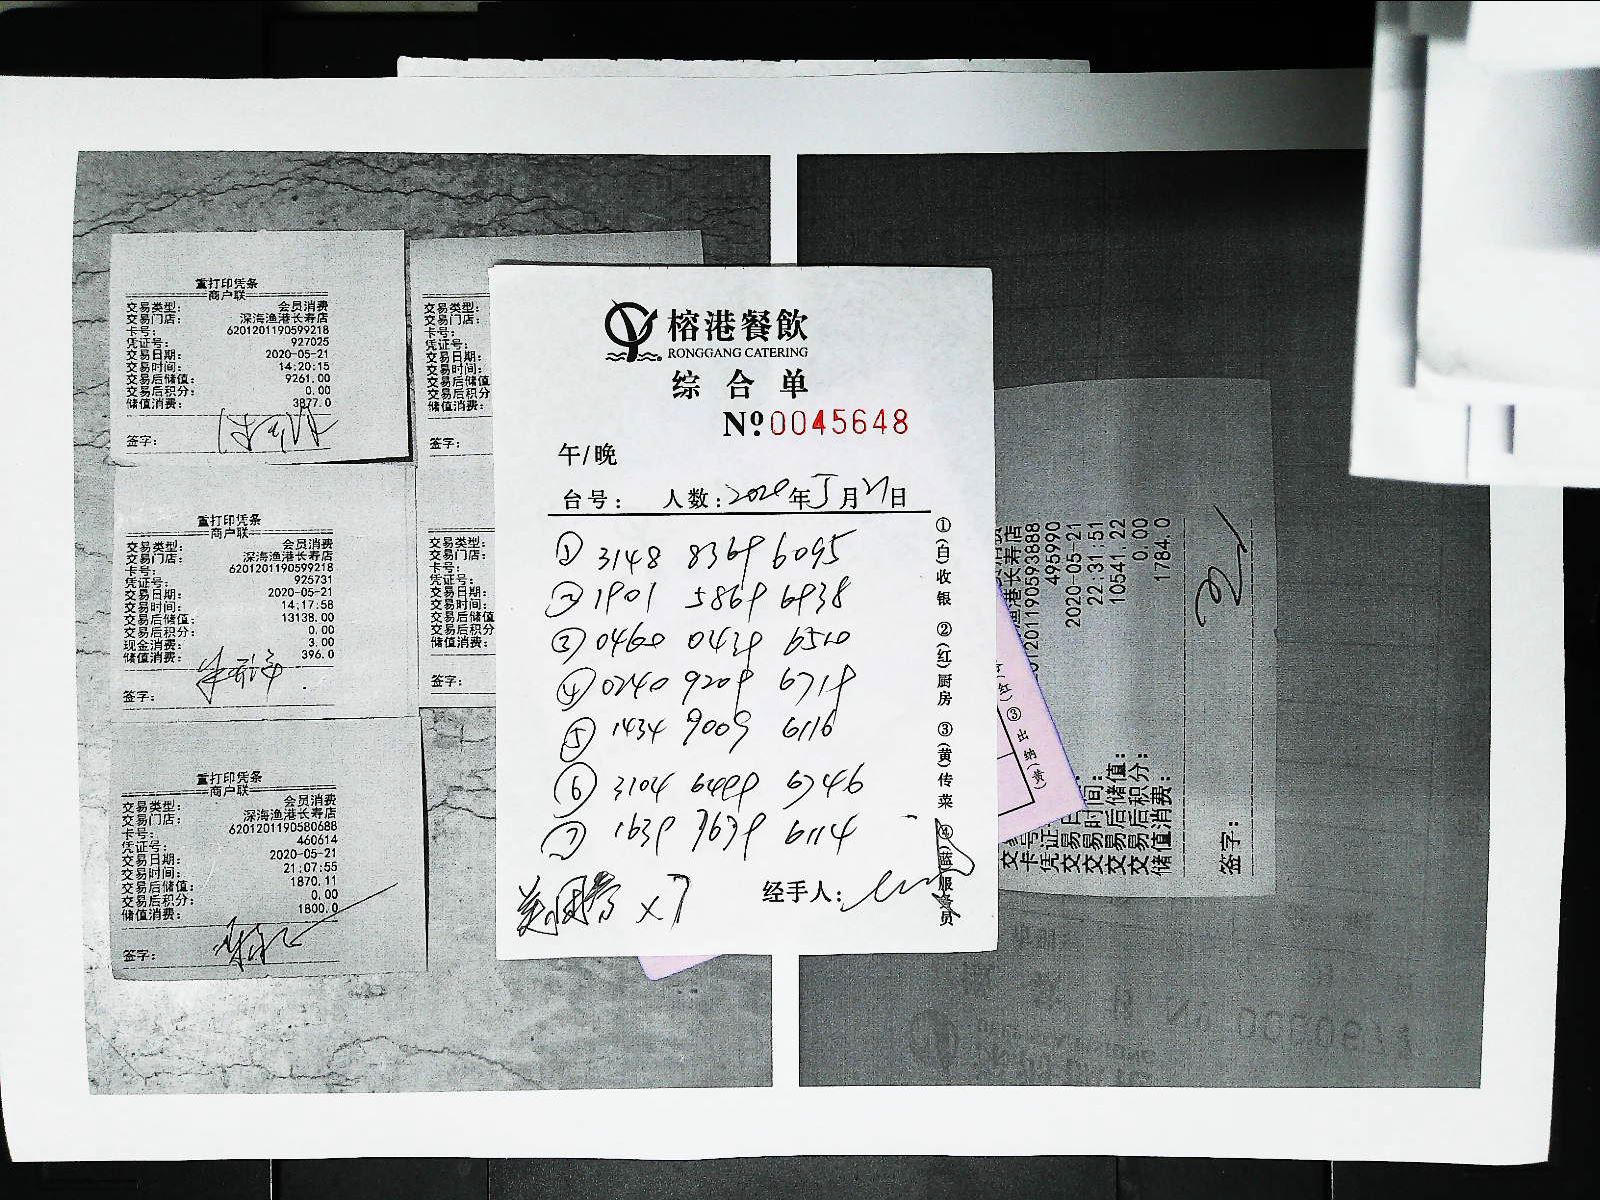 重打印凭条
商户联
交易类型： 会员消费
交易门店： 深海渔港长寿店
卡号： 6201201190599218
凭证号： 927025
交易日期： 2020-05-21
交易时间： 14:20:15
交易后储值： 9261.00
交易后积分： 0.00
储值消费： 3877.0
签字：
重打印凭条
商户联
交易类型： 会员消费
交易门店： 深海渔港长寿店
卡号： 6201201190599218
凭证号： 925731
交易日期： 2020-05-21
交易时间： 14:17:58
交易后储值： 13138.00
交易后积分： 0.00
现金消费： 3.00
储值消费： 396.0
签字：
重打印凭条
商户联
交易类型： 会员消费
交易门店： 深海渔港长寿店
卡号： 6201201190580688
凭证号： 460614
交易日期： 2020-05-21
交易时间： 21:07:55
交易后储值： 1870.11
交易后积分： 0.00
储值消费： 1800.0
签字：
交易类型：
交易门店：
卡号：
凭证号：
交易日期：
交易时间：
交易后储值
交易后积分
储值消费：
签字：
交易类型：
交易门店：
卡号：
凭证号：
交易日期：
交易时间：
交易后储值
交易后积分
储值消费：
签字：
榕港餐飲
RONGGANG CATERING
综合单
No 0045648
午/晚
台号： 人数：2020年5月21日
① 3148 8369 6095
② 1901 5869 6938
③ 0460 0439 6510
④ 0240 9209 6719
⑤ 1434 9009 6116
⑥ 3104 6499 6746
⑦ 1639 7639 6114
×7
经手人：
①(白)收银 ②(红)厨房 ③(黄)传菜 ④(蓝)服务员
(红) ③出纳(黄)
渔港长寿店
卡号 201190593888
凭证 495990
交易日 2020-05-21
交易时间： 22:31:51
交易后储值： 10541.22
交易后积分： 0.00
储值消费： 1784.0
签字：